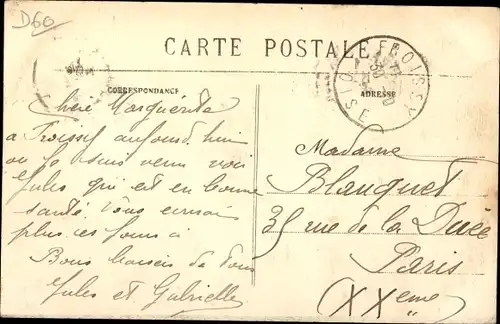 D60
CARTE POSTALE
FROISSY
OISE
CORRESPONDANCE
ADRESSE
Chère Marguerite
a Froissy aujourd'hui
où je suis venu voir
Jules qui est en bonne
santé. Vous
plus ces jours à
Bons baisers de tous
Jules et Gabrielle
Madame
Blanquet
35 rue de la Duée
Paris
(XXeme)